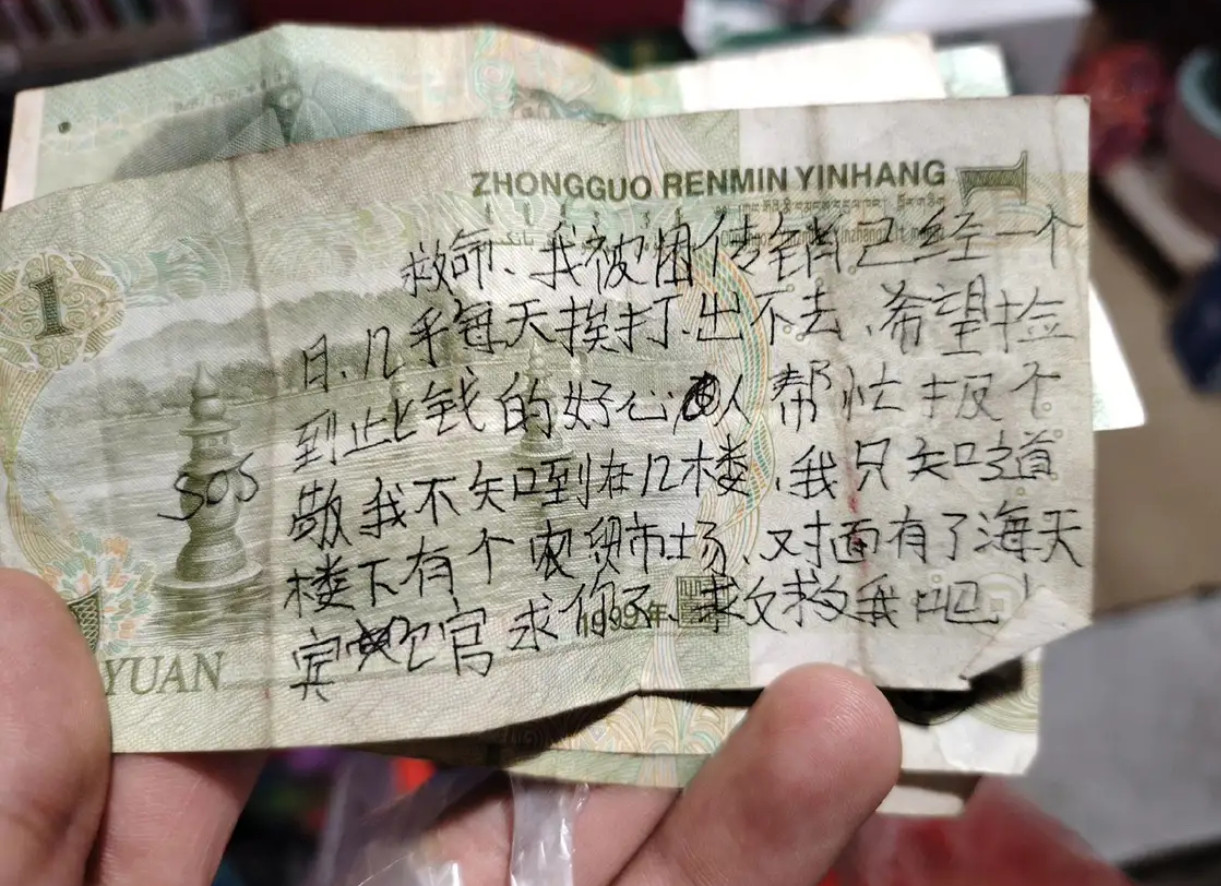 ZHONGGUO RENMIN YINHANG 1
1
救命、我被困传销已经一个
月、几乎每天挨打、出不去、希望捡
到此钱的好心人帮忙报个
警我不知到在几楼、我只知道
楼下有个农贸市场、对面有了海天
宾官求你了、救救我吧!
SOS
1999年
YUAN